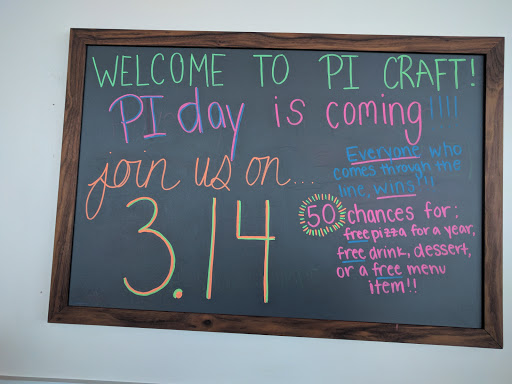 WELCOME TO PI CRAFT!
PI day is coming!!!!
join us on...
3.14
Everyone who
comes through the
line, wins!!!
50 chances for:
free pizza for a year,
free drink, dessert,
or a free menu
item!!